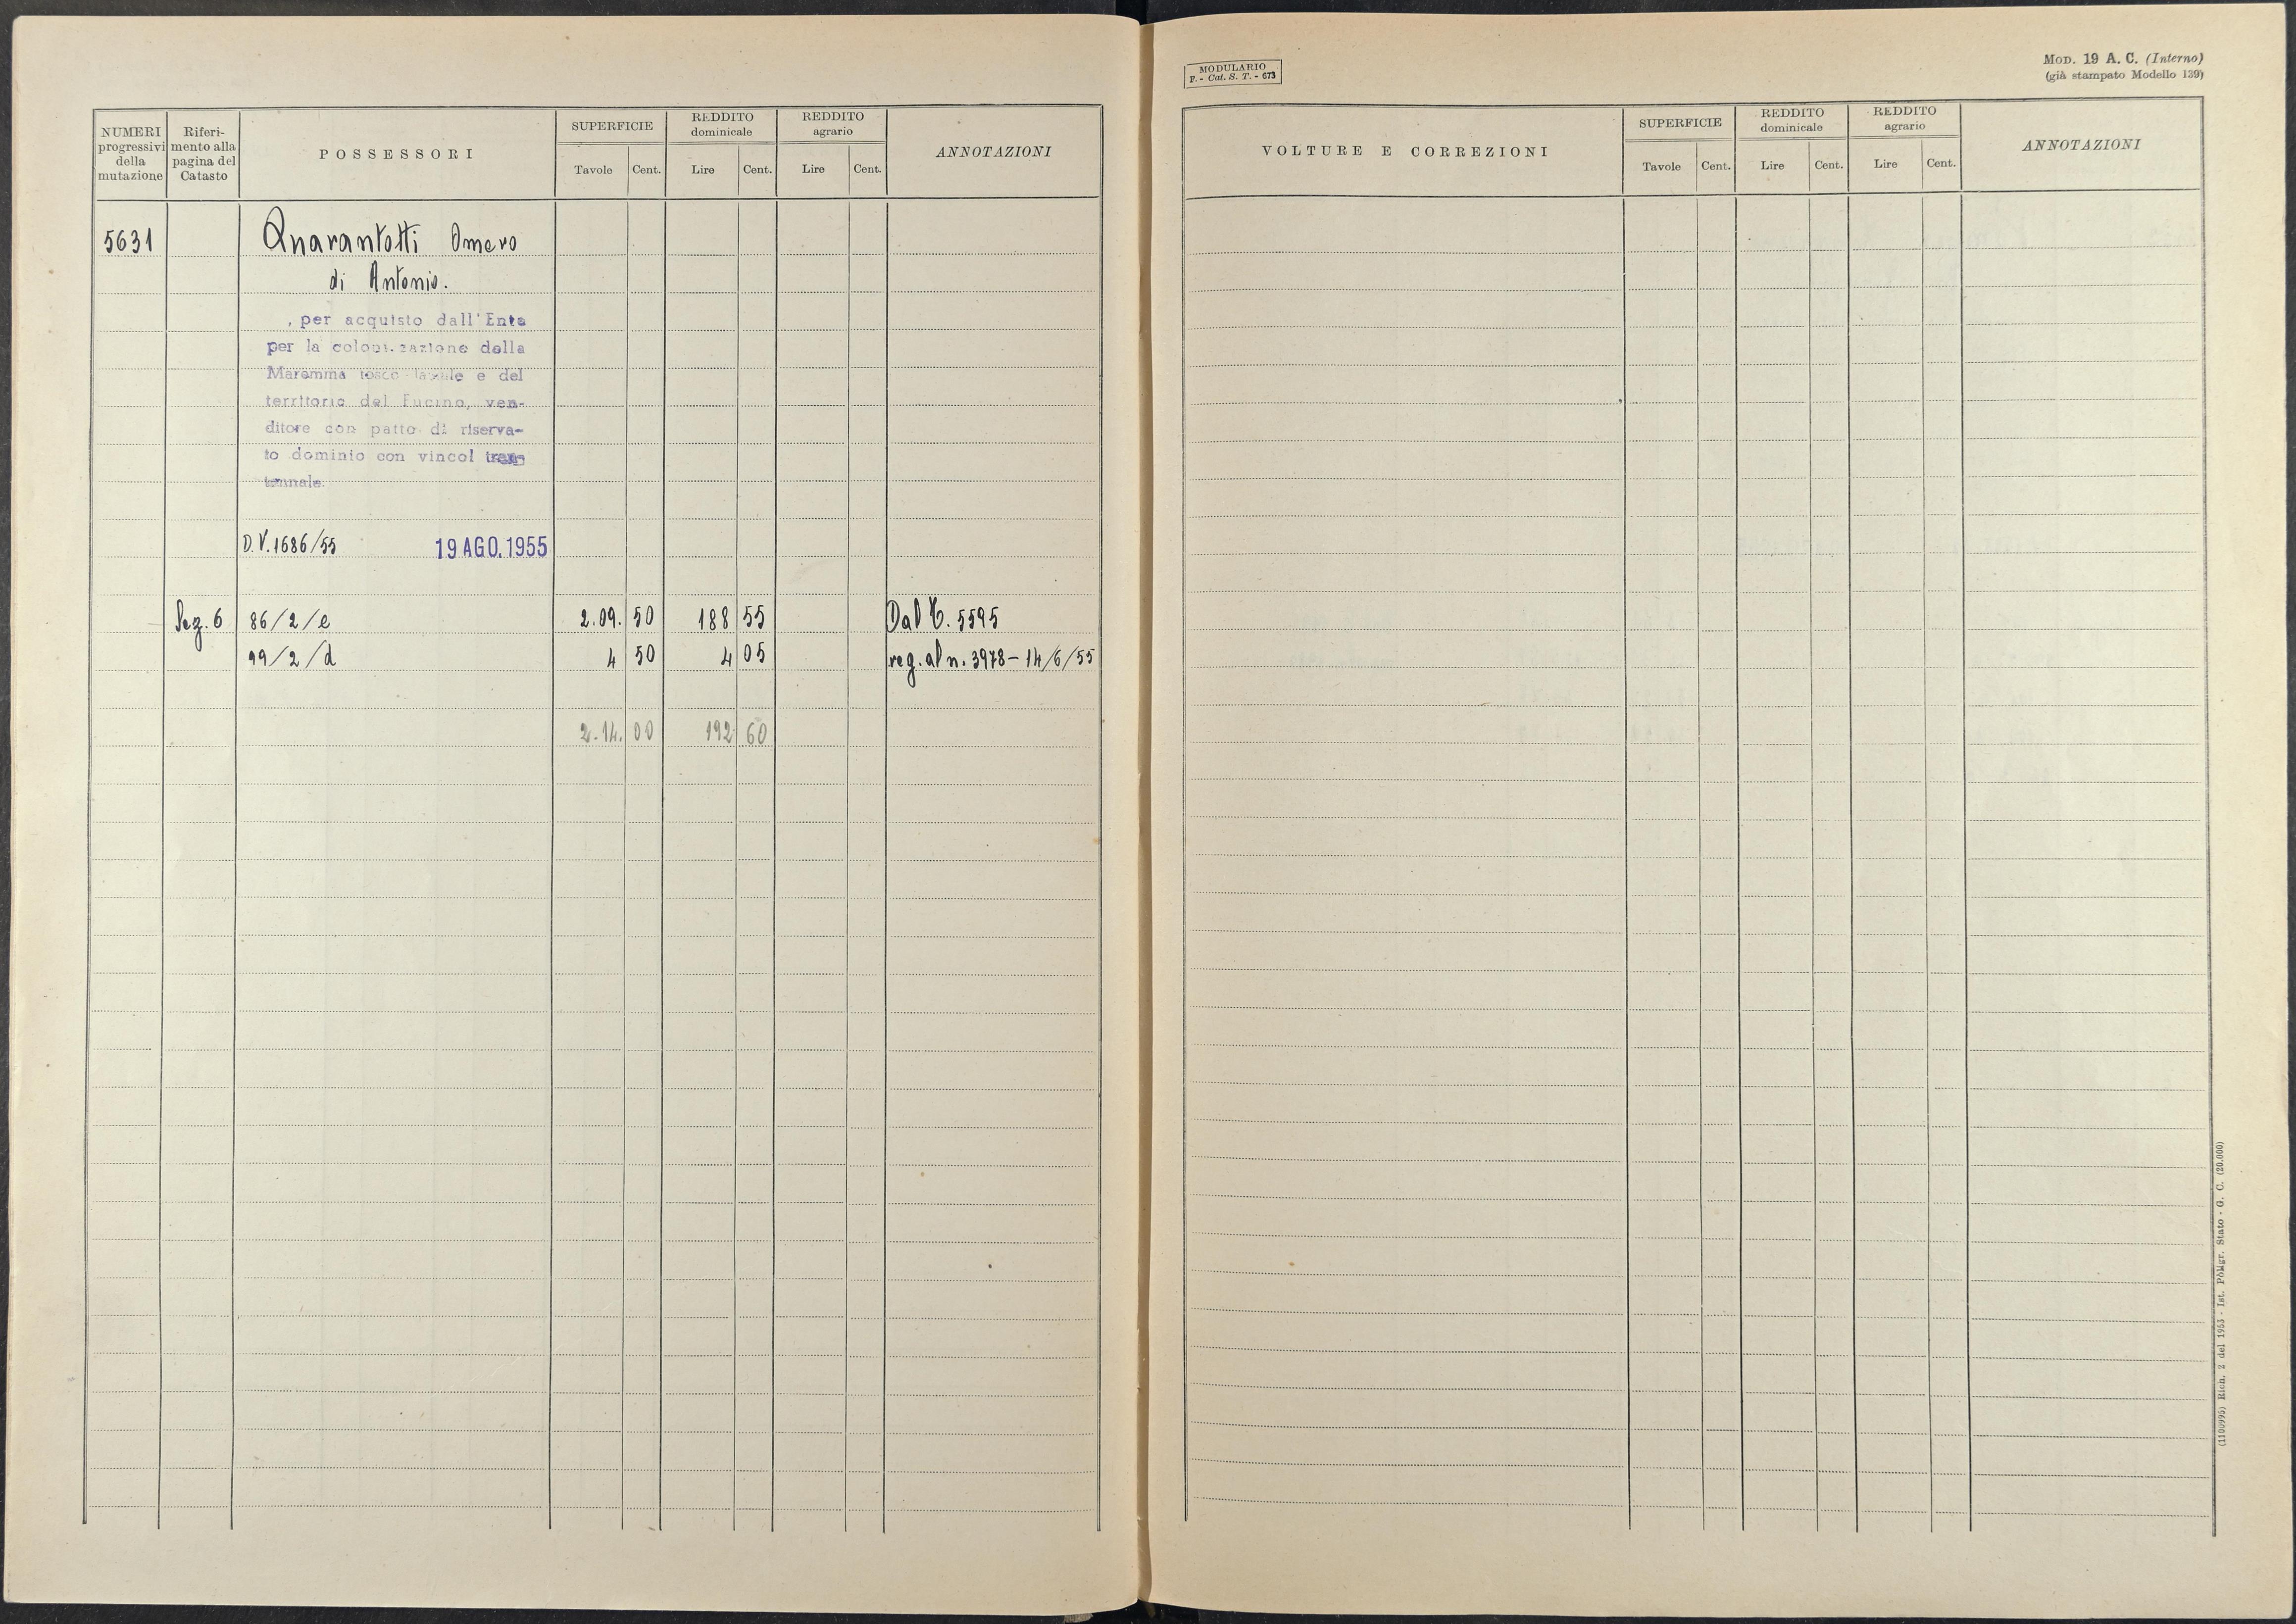 NUMERI progressivi della mutazione
Riferi-mento alla pagina del Catasto
POSSESSORI
SUPERFICIE
Tavole Cent.
REDDITO dominicale
Lire Cent.
REDDITO agrario
Lire Cent.
ANNOTAZIONI
5631 Quarantotti Omero
di Antonio.
, per acquisto dall'Ente
per la colonizzazione della
Maremma tosco laziale e del
territorio del Fucino, ven-
ditore con patto di riserva-
to dominio con vincol tren-
tennale.
D.V. 1686/55 19 AGO. 1955
Sez. 6 86/2/e 2.09. 50 188 55 Dal C. 5595
99/2/d 4 50 4 05 reg. al n. 3978 - 14/6/55
2.14. 00 192 60
MODULARIO
F. - Cat. S. T. - 673
MOD. 19 A. C. (Interno)
(già stampato Modello 139)
VOLTURE E CORREZIONI
SUPERFICIE
Tavole Cent.
REDDITO dominicale
Lire Cent.
REDDITO agrario
Lire Cent.
ANNOTAZIONI
(1100995) Rich. 2 del 1953 - Ist. Poligr. Stato - G. C. (20.000)